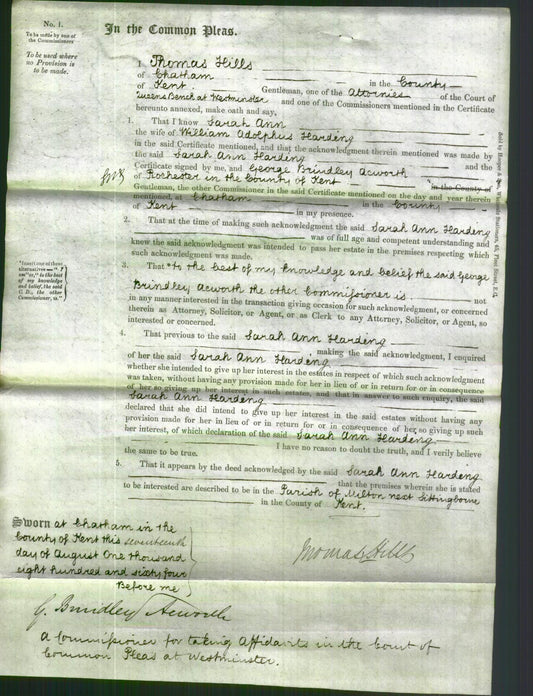 No. 1.
To be made by one of
the Commissioners
To be used where
no Provision is
to be made.
In the Common Pleas.
I Thomas Hills
of Chatham in the County
of Kent Gentleman, one of the Attornies of the Court of
Queens Bench at Westminster and one of the Commissioners mentioned in the Certificate
hereunto annexed, make oath and say,
1. That I know Sarah Ann
the wife of William Adolphus Hardeng
in the said Certificate mentioned, and that the acknowledgment therein mentioned was made by
the said Sarah Ann Hardeng and the
Certificate signed by me, and George Brindley Acworth
of Rochester in the County of Kent in the County of
Gentleman, the other Commissioner in the said Certificate mentioned on the day and year therein
mentioned, at Chatham in the County
of Kent in my presence.
2. That at the time of making such acknowledgment the said Sarah Ann Hardeng
was of full age and competent understanding and
knew the said acknowledgment was intended to pass her estate in the premises respecting which
such acknowledgment was made.
"Insert one of these
alternatives—"I
am" or, "to the best
of my knowledge
and belief, the said
C. D., the other
Commissioner, is."
3. That "to the best of my knowledge and belief the said George
Brindley Acworth the other Commissioner is not
in any manner interested in the transaction giving occasion for such acknowledgment, or concerned
therein as Attorney, Solicitor, or Agent, or as Clerk to any Attorney, Solicitor, or Agent, so
interested or concerned.
4. That previous to the said Sarah Ann Hardeng
making the said acknowledgment, I enquired
of her the said Sarah Ann Hardeng
whether she intended to give up her interest in the estates in respect of which such acknowledgment
was taken, without having any provision made for her in lieu of or in return for or in consequence
of her so giving up her interest in such estates, and that in answer to such enquiry, the said
Sarah Ann Hardeng
declared that she did intend to give up her interest in the said estates without having any
provision made for her in lieu of or in return for or in consequence of her so giving up such
her interest, of which declaration of the said Sarah Ann Hardeng
I have no reason to doubt the truth, and I verily believe
the same to be true.
5. That it appears by the deed acknowledged by the said Sarah Ann Hardeng
that the premises wherein she is stated
to be interested are described to be in the Parish of Milton next Sittingborne
in the County of Kent.
Sworn at Chatham in the
County of Kent this seventeenth
day of August One thousand
eight hundred and sixty four
Before me
Thomas Hills
G. Brindley Acworth
A Commissioner for taking Affidavits in the Court of
Common Pleas at Westminster.